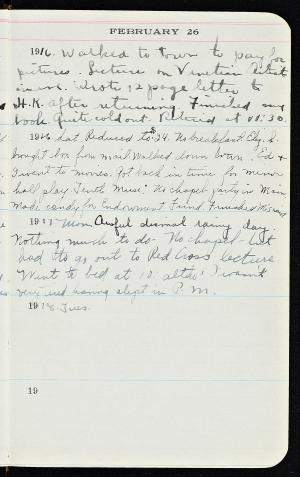 FEBRUARY 26
1916. Walked to town to pay for
pictures. Lecture on Venetian Artist
in eve. Wrote 12 page letter to
H.K. after returning. Finished my
book. Quite sold out. Retired at 11:30.
1916. Sat. Reduced to 34. No breakfast.
bought box from mail. Walked down town. Ed +
I went to movies. Got back in time for minor
hall play Tenth Muse. No chapel party in Main
Made candy for Endowment Fund. Finished
1917 Mon. Awful dismal rainy day.
Nothing much to do. No chapel - but
had to go out to Red Cross lecture
Went to bed at 10. altho' I wasn't
very tired having slept in P.M.
1918. Tues.
19